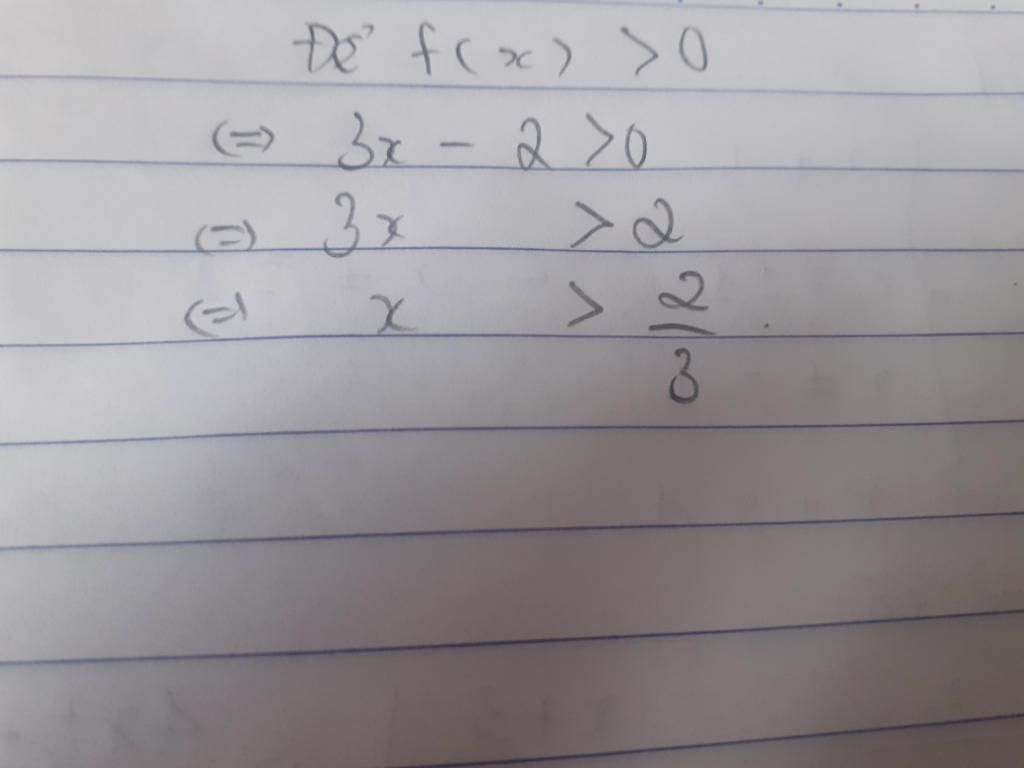 Để f(x) > 0
<=> 3x - 2 > 0
<=> 3x > 2
<=> x > 2/3.